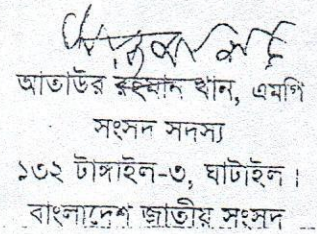 আতাউর রহমান খান, এমপি
সংসদ সদস্য
১৩২ টাঙ্গাইল-৩, ঘাটাইল।
বাংলাদেশ জাতীয় সংসদ